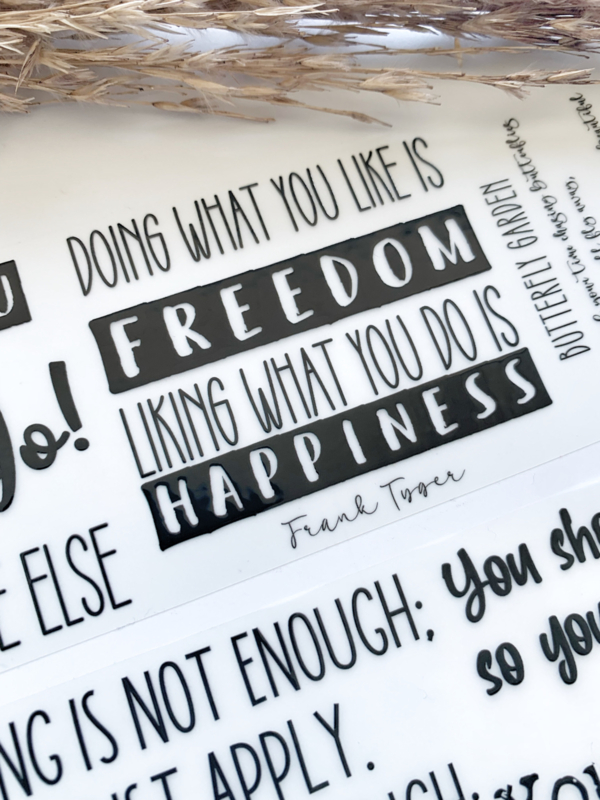 DOING WHAT YOU LIKE IS
FREEDOM
LIKING WHAT YOU DO IS
HAPPINESS
Frank Tyger
U
Do!
BUTTERFLY GARDEN
your time chasing butterflies
beautiful
ELSE
IS NOT ENOUGH;
APPLY.
You
so you